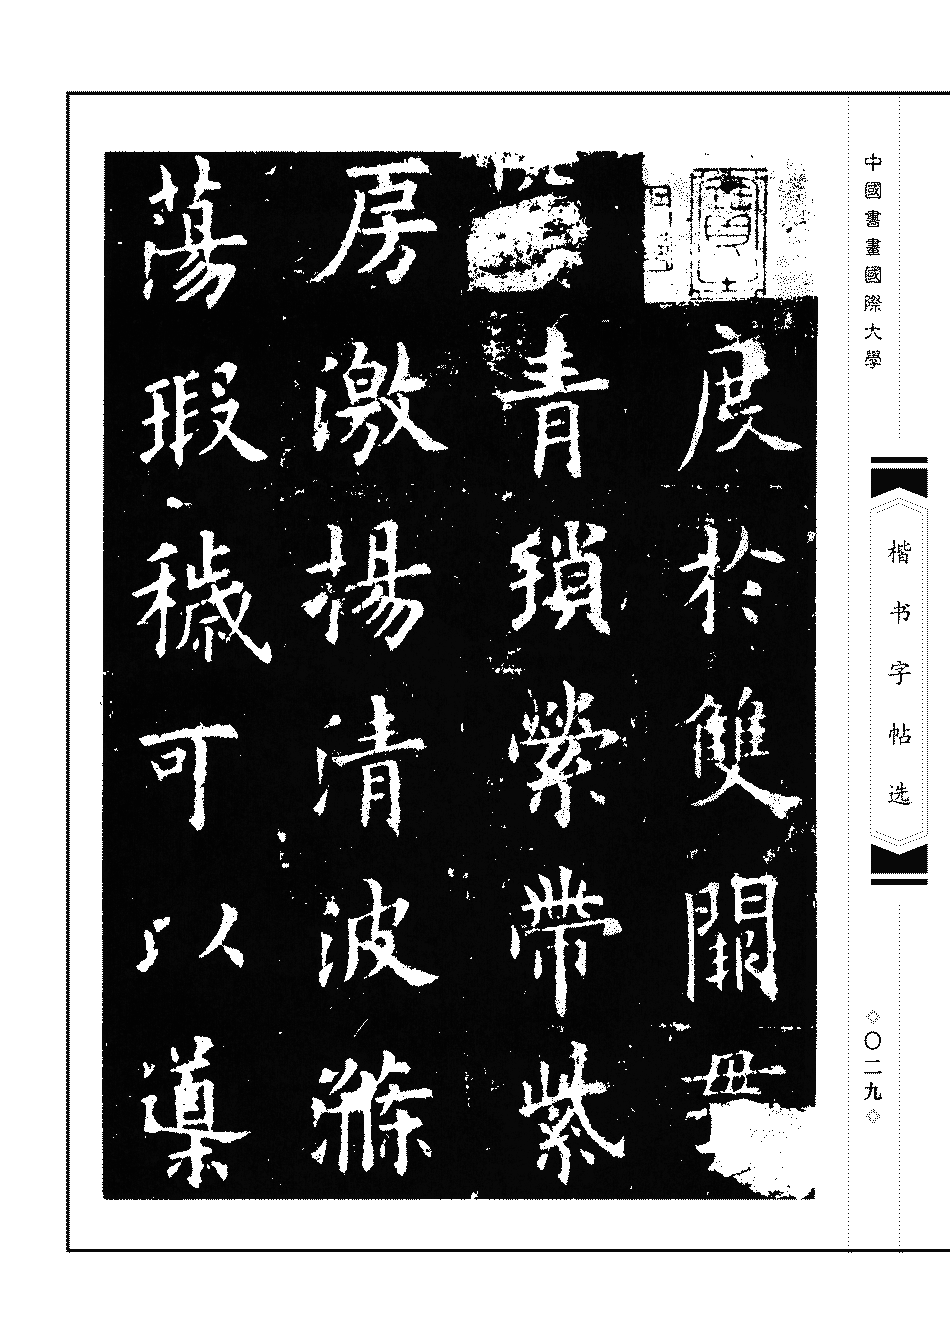 中國書畫國際大學
楷书字帖选
〇二九
度於雙闕
青瑣縈帶紫
房激揚清波滌
蕩瑕穢可以導